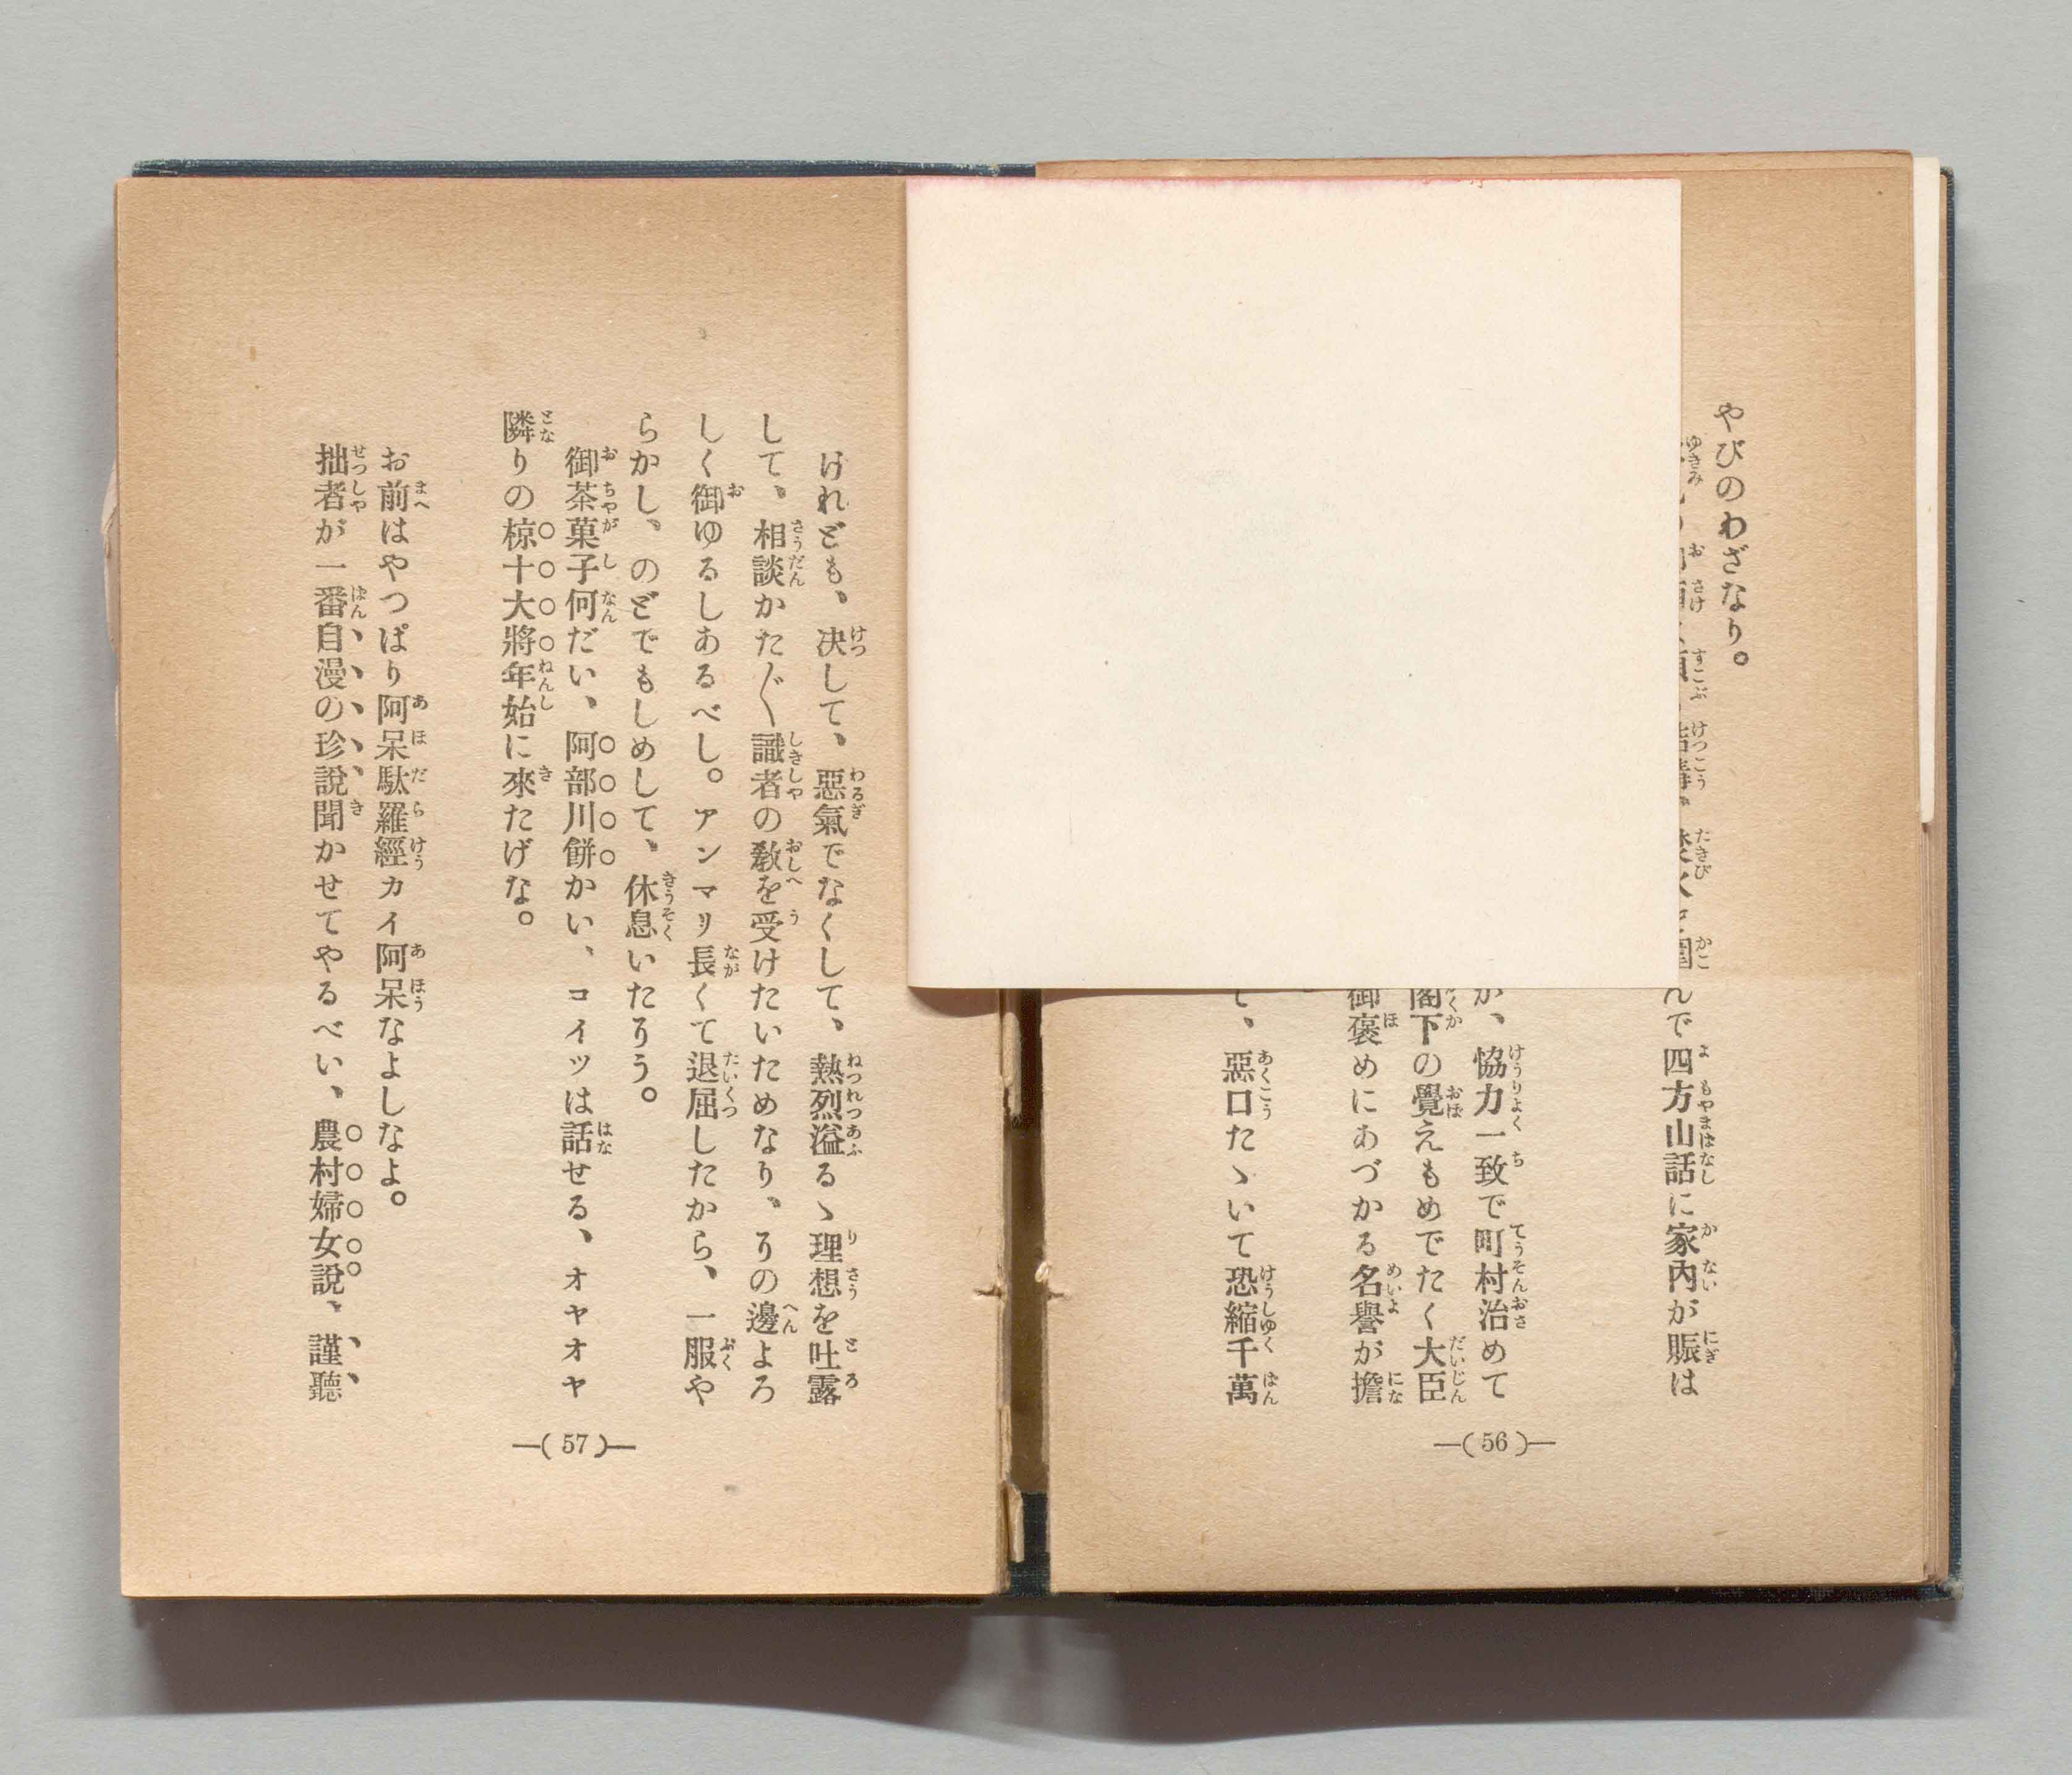 やびのわざなり。
んで四方山話に家內が賑は
、協力一致で町村治めて
閣下の覺えもめでたく大臣
御褒めにあづかる名譽が擔
て、惡口たゝいて恐縮千萬
―( 56 )―
けれども、决して、惡氣でなくして、熱烈溢るゝ理想を吐露
して、相談かた〴〵識者の敎を受けたいためなり、その邊よろ
しく御ゆるしあるべし。アンマリ長くて退屈したから、一服や
らかし、のどでもしめして、休息いたそう。
御茶菓子何だい、阿部川餅かい、コイツは話せる、オヤオヤ
隣りの椋十大將年始に來たげな。
お前はやつぱり阿呆駄羅經カイ阿呆なよしなよ。
拙者が一番自漫の珍說聞かせてやるべい、農村婦女說、謹聽
―( 57 )―